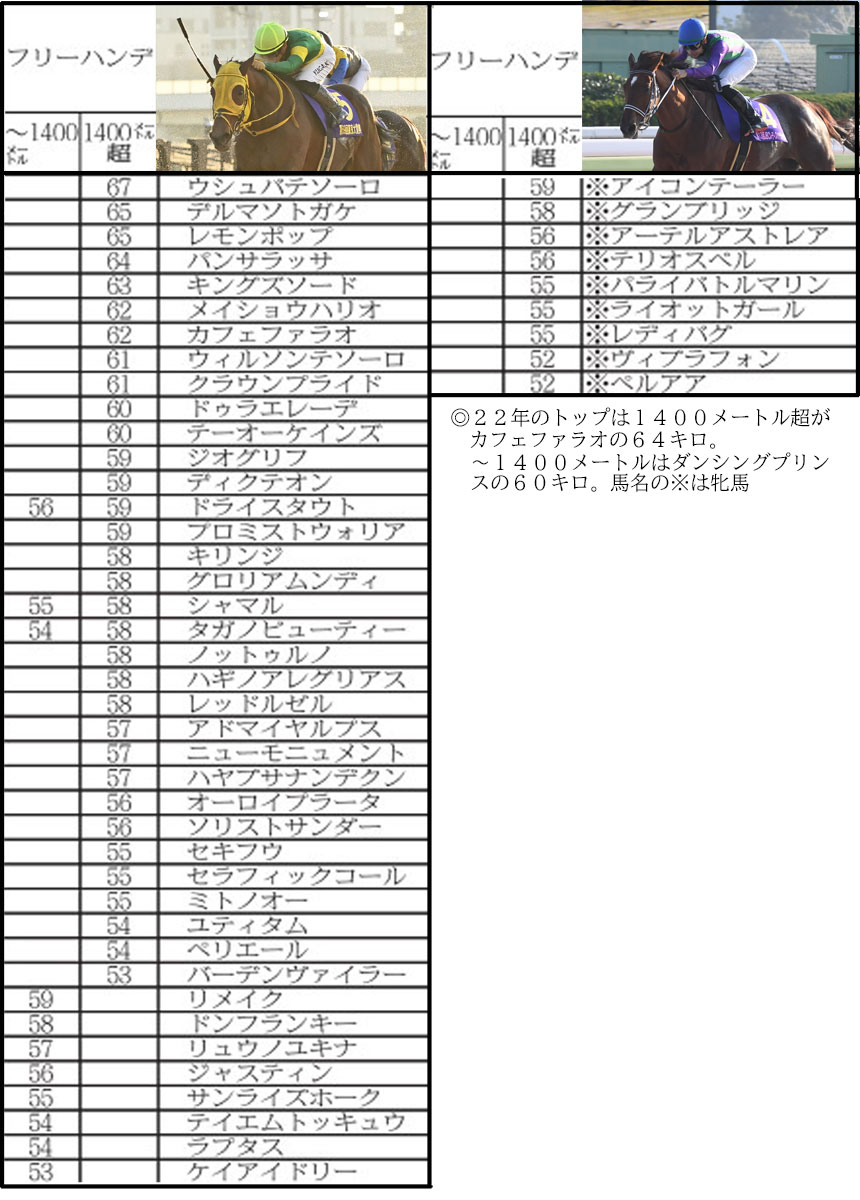 フリーハンデ
～1400メートル 1400メートル超
67 ウシュバテソーロ
65 デルマソトガケ
65 レモンポップ
64 パンサラッサ
63 キングズソード
62 メイショウハリオ
62 カフェファラオ
61 ウィルソンテソーロ
61 クラウンプライド
60 ドゥラエレーデ
60 テーオーケインズ
59 ジオグリフ
59 ディクテオン
56 59 ドライスタウト
59 プロミストウォリア
58 キリンジ
58 グロリアムンディ
55 58 シャマル
54 58 タガノビューティー
58 ノットゥルノ
58 ハギノアレグリアス
58 レッドルゼル
57 アドマイヤルプス
57 ニューモニュメント
57 ハヤブサナンデクン
56 オーロイプラータ
56 ソリストサンダー
55 セキフウ
55 セラフィックコール
55 ミトノオー
54 ユティタム
54 ペリエール
53 バーデンヴァイラー
59 リメイク
58 ドンフランキー
57 リュウノユキナ
56 ジャスティン
55 サンライズホーク
54 テイエムトッキュウ
54 ラプタス
53 ケイアイドリー
フリーハンデ
～1400メートル 1400メートル超
59 ※アイコンテーラー
58 ※グランブリッジ
56 ※アーテルアストレア
56 ※テリオスベル
55 ※パライバトルマリン
55 ※ライオットガール
55 ※レディバグ
52 ※ヴィブラフォン
52 ※ペルアア
◎２２年のトップは１４００メートル超が
カフェファラオの６４キロ。
～１４００メートルはダンシングプリン
スの６０キロ。馬名の※は牝馬